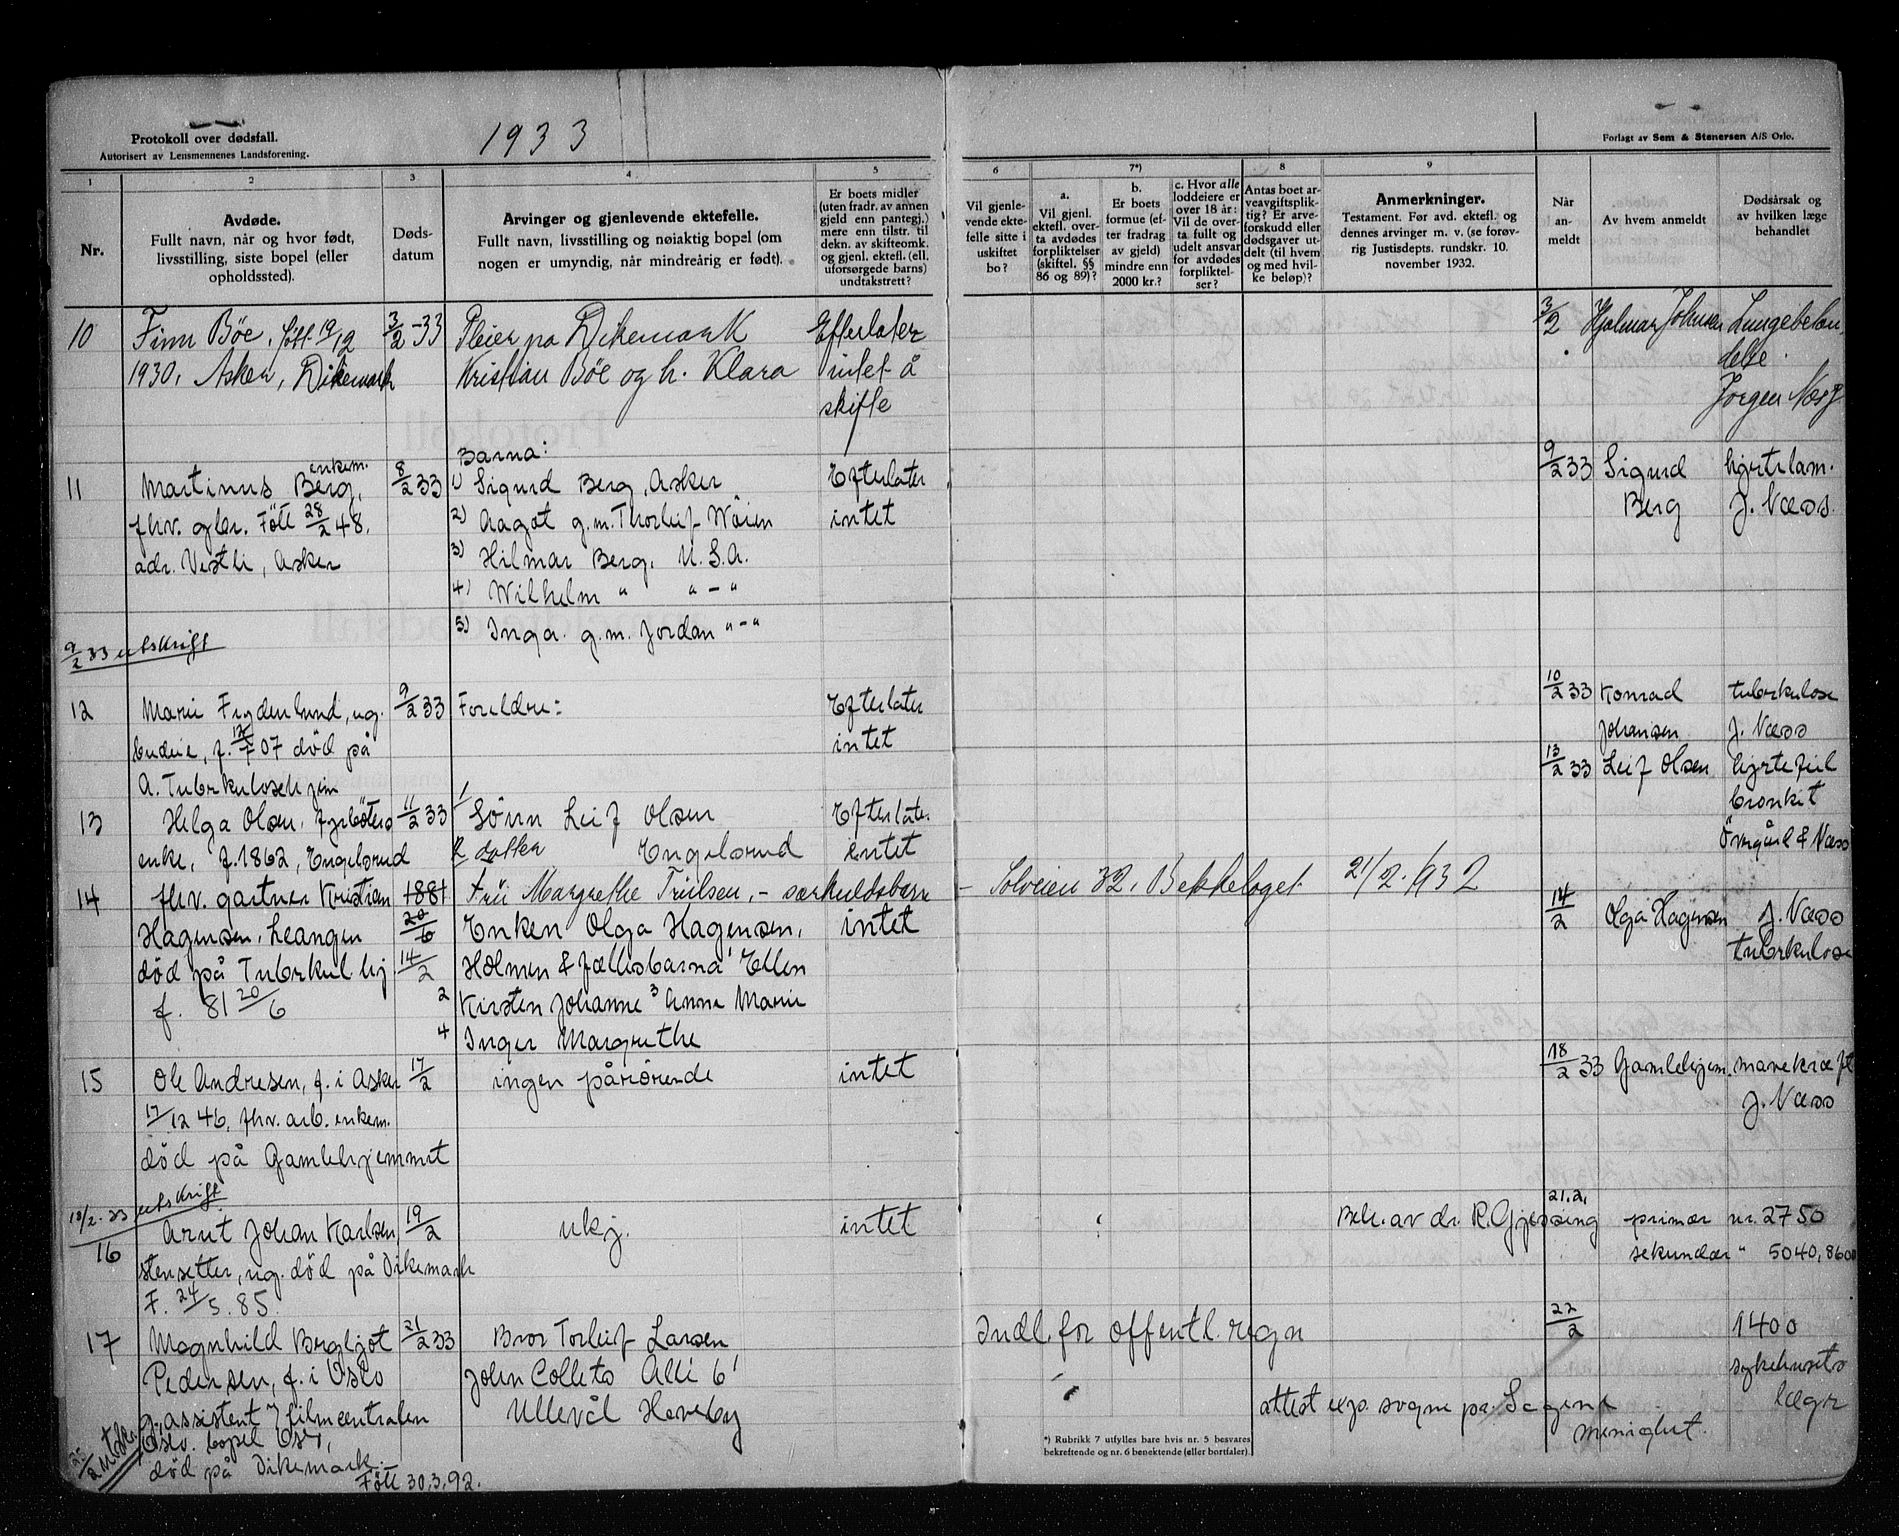 Protokoll over dødsfall.
Autorisert av Lensmennenes Landsforening.
1933
Forlagt av Sem & Stenersen A/S Oslo.
1
2
3
4
5
6
7*)
8
9
Nr.
Avdøde.
Fullt navn, når og hvor født,
livsstilling, siste bopel (eller
opholdssted).
Døds-
datum
Arvinger og gjenlevende ektefelle.
Fullt navn, livsstilling og nøiaktig bopel (om
nogen er umyndig, når mindreårig er født).
Er boets midler
(uten fradr. av annen
gjeld enn pantegj.)
mere enn tilstr. til
dekn. av skifteomk.
og gjenl. ektef. (ell.
uforsørgede barns)
undtakstrett?
Vil gjenle-
vende ekte-
felle sitte i
uskiftet
bo?
a.
Vil gjenl.
ektefl. over-
ta avdødes
forpliktelser
(skiftel. §§
86 og 89)?
b.
Er boets
formue (ef-
ter fradrag
av gjeld)
mindre enn
2000 kr.?
c. Hvor alle
loddeiere er
over 18 år:
Vil de over-
ta fullt og
udelt ansvar
for avdødes
forpliktel-
ser?
Antas boet ar-
veavgiftsplik-
tig? Er arve-
forskudd eller
dødsgaver ut-
delt (til hvem
og med hvil-
ke beløp)?
Anmerkninger.
Testament. Før avd. ektefl. og
dennes arvinger m. v. (se forøv-
rig Justisdepts. rundskr. 10.
november 1932.
Når
an-
meldt
Av hvem anmeldt
Dødsårsak og
av hvilken læge
behandlet
10 Finn Böe, fött 19/12 3/2-33 Pleier pa Dikemark Efterlater 3/2 Hjalmar Johnsen Lungebetan-
1930, Asker, Dikemark Kristian Böe og h. Klara intet å delse.
skifte Jørgen Næss
Barna:
11 Martinus Berg, enkem. 8/2 33 1) Sigurd Berg, Asker Efterlater 9/2 33 Sigurd hjertelam.
fhv. gbr. Fött 28/2 48. 2) Aagot g.m. Thorleif Wöien intet Berg J. Næss.
adr. Vestli, Asker 3) Hilmar Berg, U.S.A.
4) Wilhelm " " - "
5) Inga. g.m. Jordan " - "
9/2 33 utskrift
12 Marie Frydenlund, ug. 9/2 33 Foreldre: Efterlater 10/2 33 Konrad tuberkulose
budeie, f. 07 död på intet Johansen J. Næss
A. Tuberkulosehjem 13/2 33 Leif Olsen hjertefeil
13 Helga Olsen, fyrböters 11/2 33 1 Sønn Leif Olsen Efterlater bronkit
enke, f. 1862, Engelsrud 2 datter Engelsrud intet Övergård & Næss
14 fhv. gartner Kristian 1881 Frii Margrethe Truelsen, - særkuldsbarn - Solveien 32, Bekkelaget. 21/2.1932
Hagensen, Leangen 20/6 Enken Olga Hagensen, intet 14/2 Olga Hagensen J. Næss
död på Tuberkul hj 14/2 Holmen & fællesbarna 1 Ellen tuberkulose
f. 81 20/6 2 Kirsten Johanne 3 Anna Marie
4 Inger Margrethe
15 Ole Andresen, f. i Asker 17/2 ingen pårörende intet 18/2 33 Gamlehjem. mavekræft
17/12 46, fhv. arb. enkem. J. Næss
död på Gamlehjemmet
18/2-33 utskrift
16 Arnt Johan Karlsen, 19/2 ukj. intet Beh. av dr. R. Gjessing 21.2. primær nr. 2750
stensetter, ug. död på Dikemark sekundær " 5040, 8600
F. 24/5.85.
17 Magnhild Bergljot 21/2 33 Bror Torleif Larsen, Indl. for offentl. regn 22/2 1400
Pedersen, f. i Oslo John Collets Allé 6 sykehusets
g. assistent v filmcentralen Ullevål Haveby attest exp. sogne pr. Sagene læge
Oslo. bopel Oslo, menighet.
död på Dikemark.
Fött 30.3.92.
*) Rubrikk 7 utfylles bare hvis nr. 5 besvares
bekreftende og nr. 6 benektende (eller bortfaller).